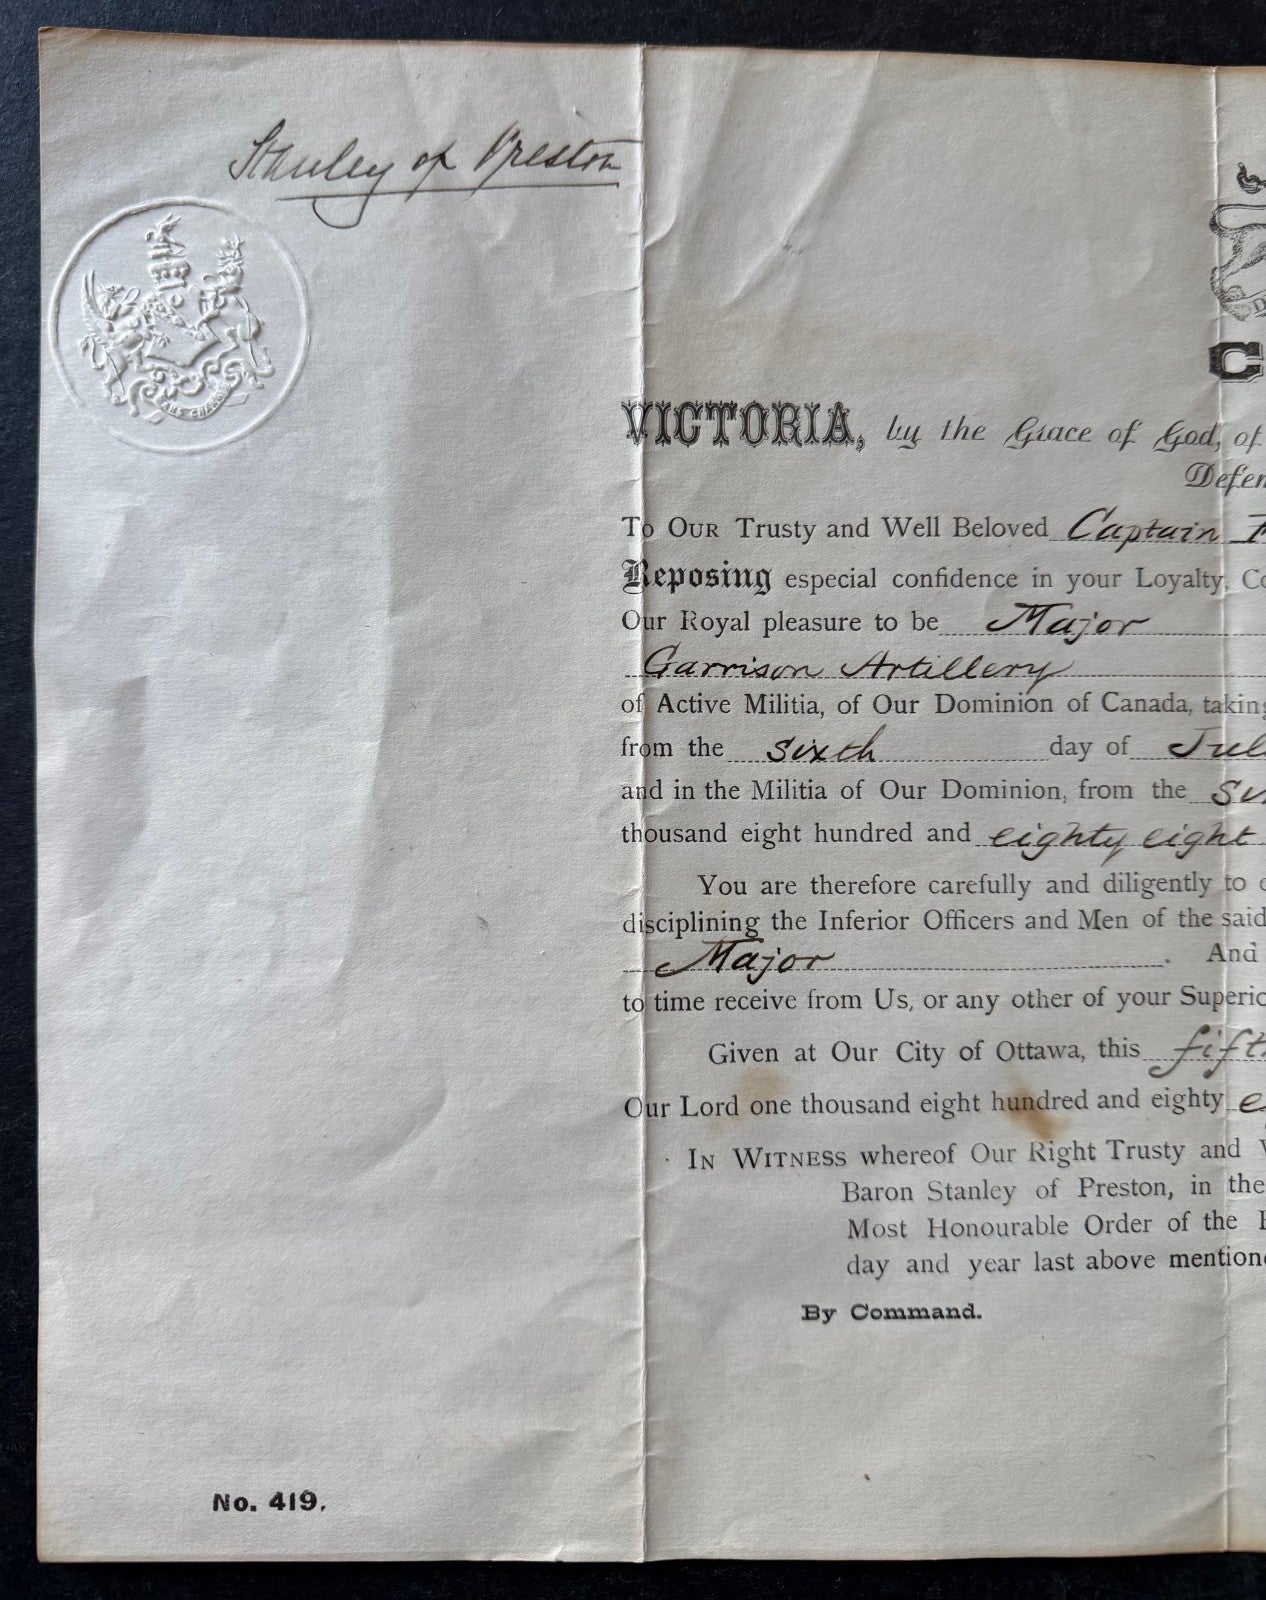 Stanley of Preston
SANS CHANGER
C
VICTORIA, by the Grace of God, of
Defen
To Our Trusty and Well Beloved Captain
Reposing especial confidence in your Loyalty, Co
Our Royal pleasure to be Major
Garrison Artillery
of Active Militia, of Our Dominion of Canada, taking
from the sixth day of Jul
and in the Militia of Our Dominion, from the
thousand eight hundred and eighty eight
You are therefore carefully and diligently to
disciplining the Inferior Officers and Men of the said
Major. And
to time receive from Us, or any other of your Superio
Given at Our City of Ottawa, this fift
Our Lord one thousand eight hundred and eighty e
In Witness whereof Our Right Trusty and
Baron Stanley of Preston, in the
Most Honourable Order of the
day and year last above mentione
By Command.
No. 419.